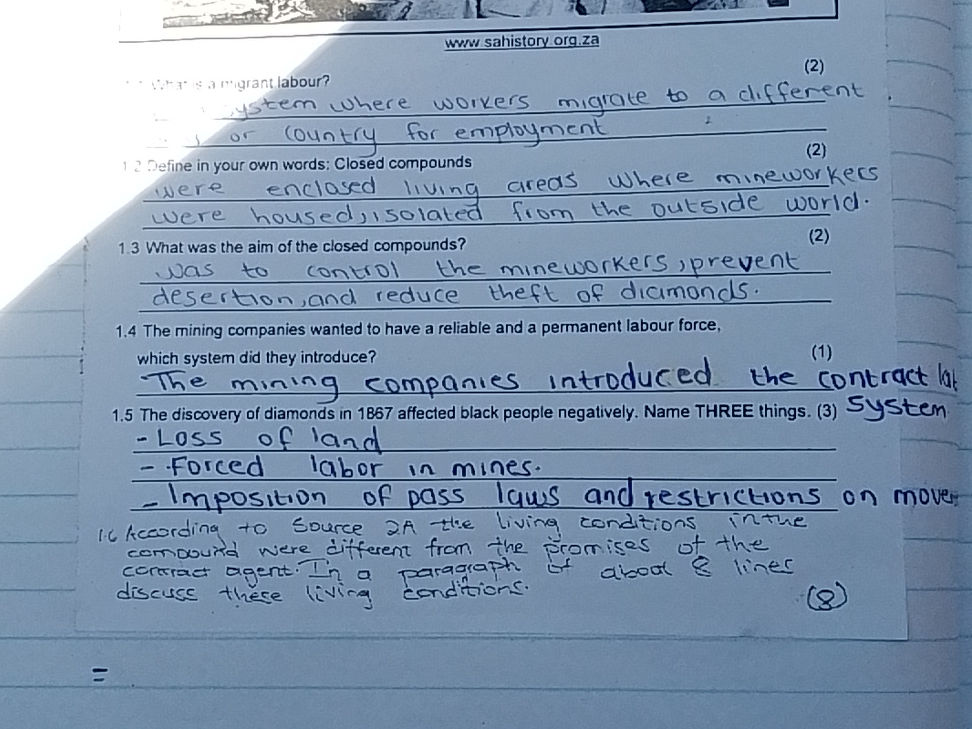 www.sahistory.org.za
What is a migrant labour? (2)
system where workers migrate to a different
or country for employment
1.2 Define in your own words: Closed compounds (2)
were enclosed living areas where mineworkers
were housed, isolated from the outside world.
1.3 What was the aim of the closed compounds? (2)
was to control the mineworkers, prevent
desertion, and reduce theft of diamonds.
1.4 The mining companies wanted to have a reliable and a permanent labour force,
which system did they introduce? (1)
The mining companies introduced the contract lab
1.5 The discovery of diamonds in 1867 affected black people negatively. Name THREE things. (3) system
- Loss of land
- Forced labor in mines.
- Imposition of pass laws and restrictions on move
1.6 According to Source 2A the living conditions in the
compound were different from the promises of the
contract agent. In a paragraph of about 8 lines
discuss these living conditions. (8)
=